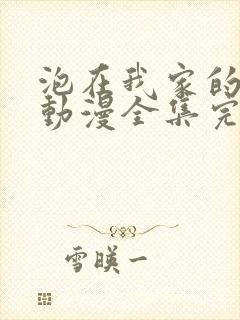 泡在我家的
動漫全集完
雪暎一